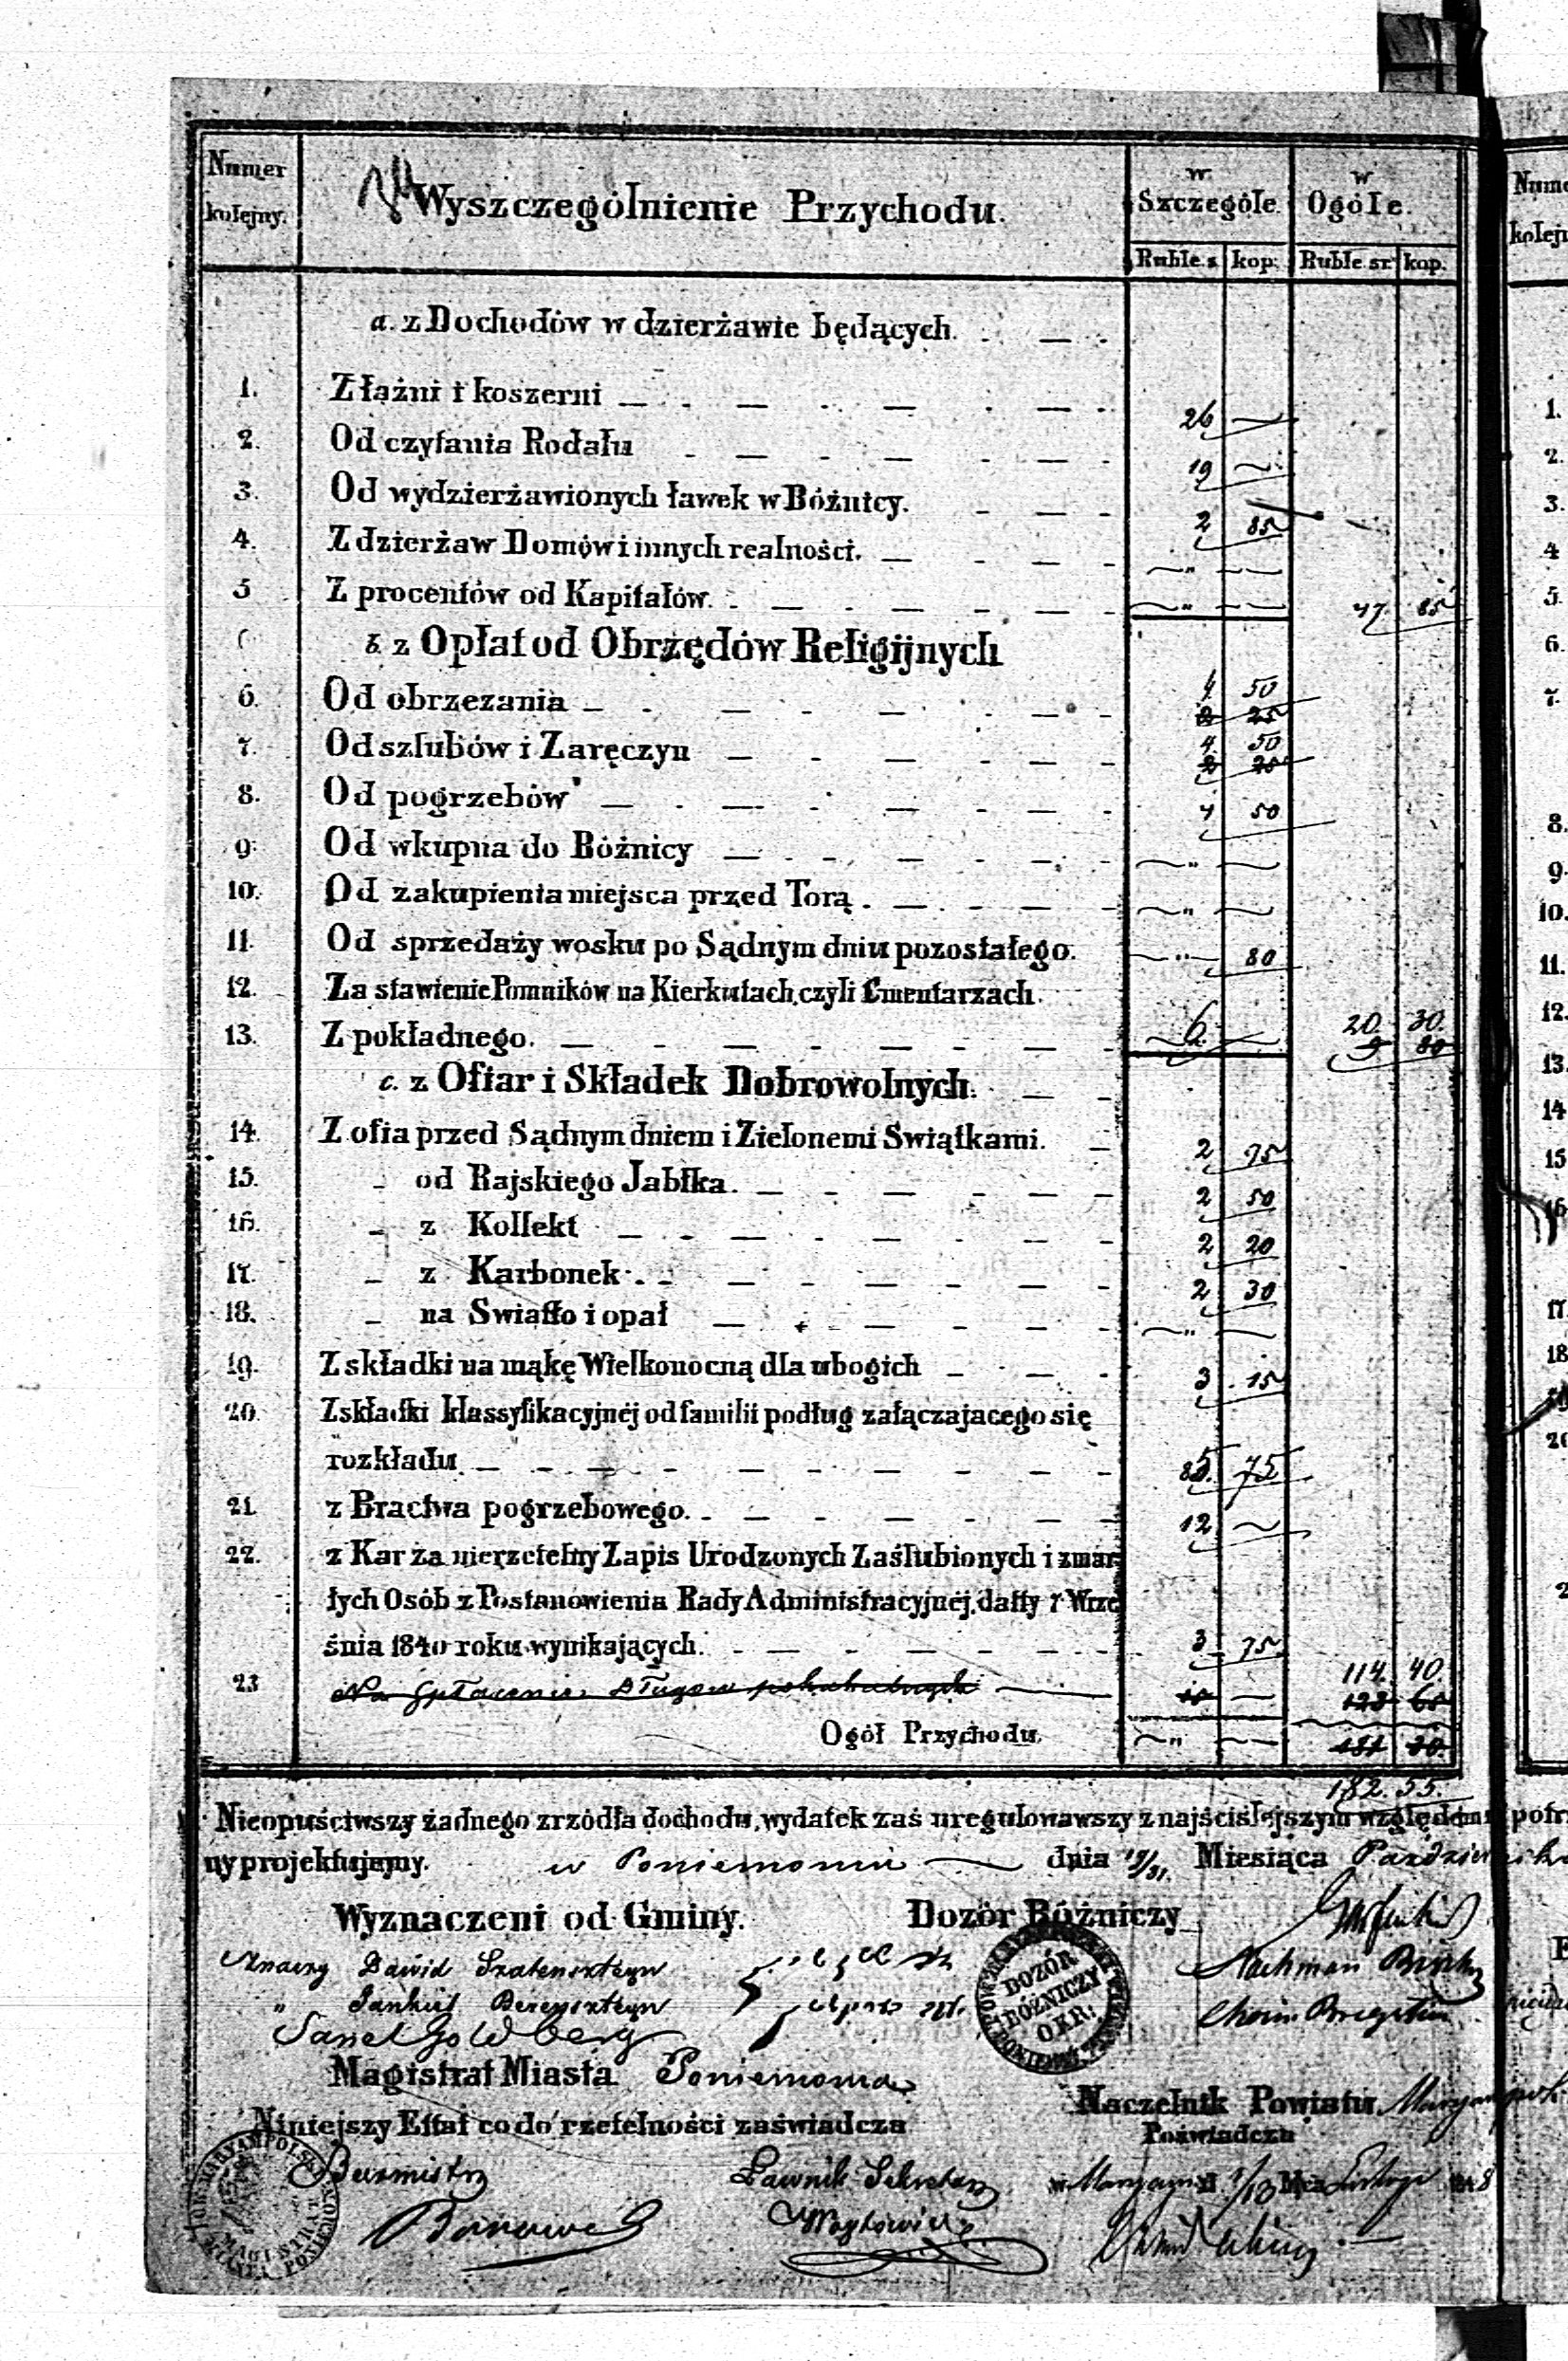 Numer kolejny. Wyszczególnienie Przychodu. w Szczególe. w Ogóle.
Ruble s kop: Ruble sr. kop.
a. z Dochodów w dzierżawie będących.
1. Z łaźni i koszerni 26 —
2. Od czytania Rodału 19 —
3. Od wydzierżawionych ławek w Bóźnicy. 2 85
4. Z dzierżaw Domów i innych realności. — " — —
5 Z procentów od Kapitałów. — " — — 47. 85
b. z Opłat od Obrzędów Religijnych
6. Od obrzezania 4 50
2 25
7. Od szlubów i Zaręczyn 4. 50
2 25
8. Od pogrzebów 4 50
9. Od wkupna do Bóżnicy — " —
10. Od zakupienia miejsca przed Torą. — " —
11. Od sprzedaży wosku po Sądnym dniu pozostałego. — " — 80
12. Za stawienie Pomników na Kierkutach, czyli Cmentarzach.
13. Z pokładnego. 6 — 20. 30.
9 80
c. z Ofiar i Składek Dobrowolnych.
14. Z ofia przed Sądnym dniem i Zielonemi Swiątkami. 2 75
15. - od Rajskiego Jabłka. 2 50
16. - z Kollekt 2 20
17. - z Karbonek. 2 30
18. - na Swiatło i opał — " —
19. Z składki na mąkę Wielkonocną dla ubogich 3 15
20. Z składki klassyfikacyjnéj od familii podług załączajacego się
rozkładu. 85. 75
21. z Bractwa pogrzebowego. 12 —
22. z Kar za nierzetelny Zapis Urodzonych Zaślubionych i zmar-
łych Osób z Postanowienia Rady Administracyjnéj, datty 7 Wrze
śnia 1840 roku wynikających. 3 75.
114. 40.
23 Na Spłacenie Długow —
Ogół Przychodu. — " — —
182. 55.
Nieopuściwszy żadnego zrzódła dochodu, wydatek zaś uregulowawszy z najściślejszym względem potr
ny projektujemy. w Poniemoniu — dnia 19/31. Miesiąca Październik
Wyznaczeni od Gminy. Dozór Bóżniczy
Dawid
Nachman
" Jankiel Berensztejn
Sanel Goldberg
DOZÓR BÓŻNICZY OKR:
Magistrat Miasta Poniemonia
Niniejszy Ettat co do rzetelności zaświadcza
Naczelnik Powiatu
Poświadcza
Burmistrz
Ławnik Sekretarz